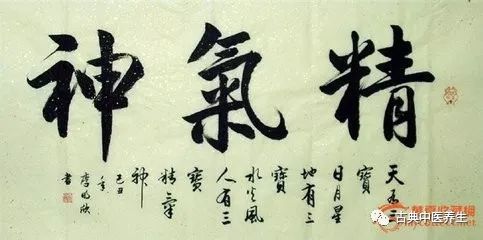 精氣神
天有三
寶
日月星
地有三
寶
水火風
人有三
寶
精氣
神
己丑
書
华夏收藏网
mycollect.net
古典中医养生